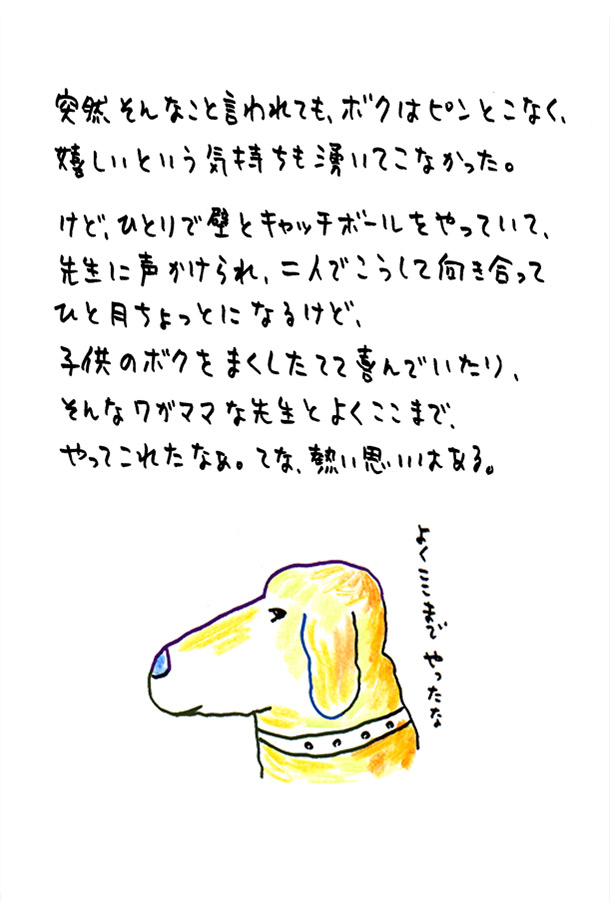 突然そんなこと言われても、ボクはピンとこなく、
嬉しいという気持ちも湧いてこなかった。
けど、ひとりで壁とキャッチボールをやっていて、
先生に声かけられ、二人でこうして向き合って
ひと月ちょっとになるけど、
子供のボクをまくしたてて喜んでいたり、
そんなワガママな先生とよくここまで、
やってこれたなぁ。てな、熱い思いはある。
よくここまでやったな